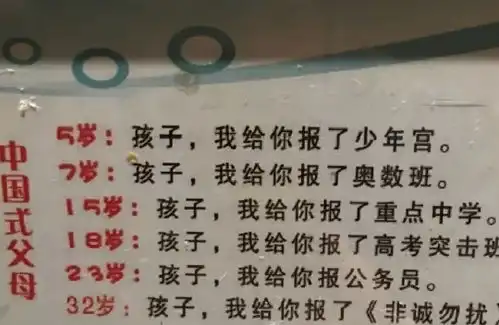 中国式父母
5岁：孩子，我给你报了少年宫。
7岁：孩子，我给你报了奥数班。
15岁：孩子，我给你报了重点中学。
18岁：孩子，我给你报了高考突击班
23岁：孩子，我给你报公务员。
32岁：孩子，我给你报了《非诚勿扰》